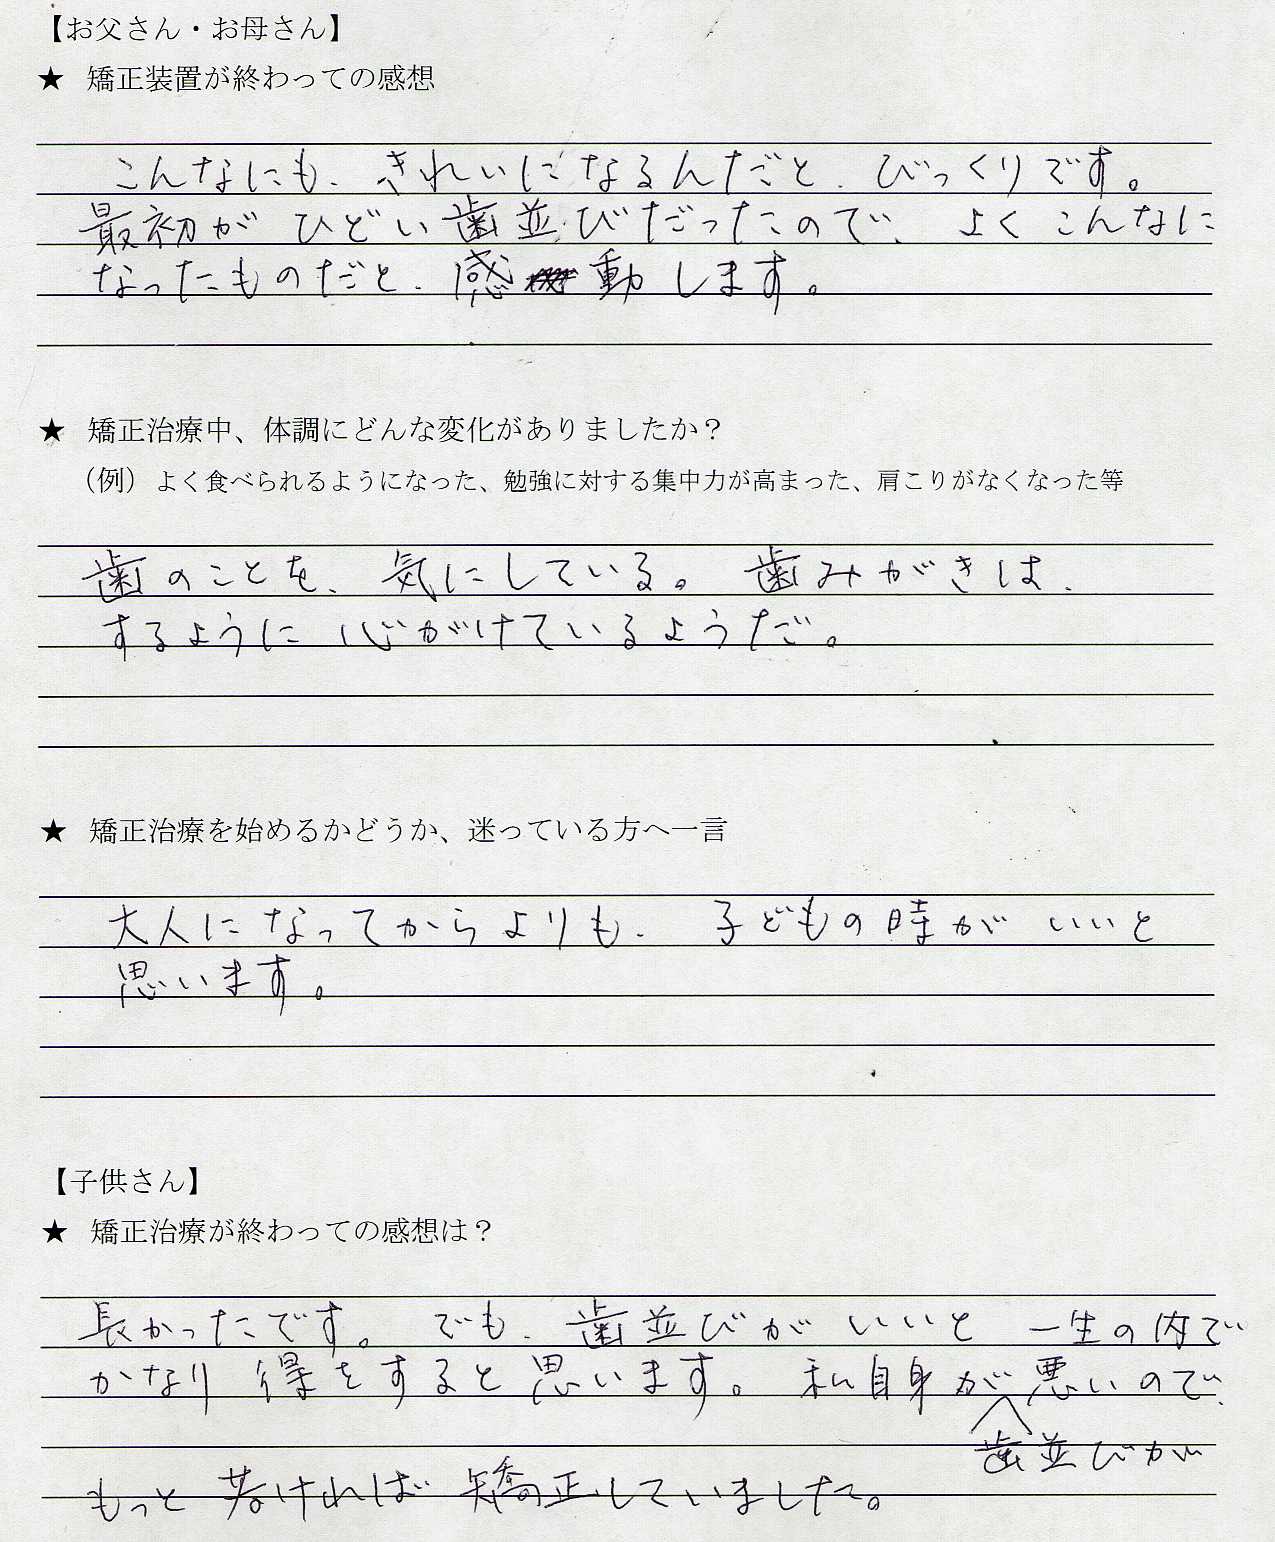 【お父さん・お母さん】
★ 矯正装置が終わっての感想
こんなにも、きれいになるんだと、びっくりです。
最初がひどい歯並びだったので、よくこんなに
なったものだと、感動します。
★ 矯正治療中、体調にどんな変化がありましたか？
（例）よく食べられるようになった、勉強に対する集中力が高まった、肩こりがなくなった等
歯のことを、気にしている。歯みがきは、
するように心がけているようだ。
★ 矯正治療を始めるかどうか、迷っている方へ一言
大人になってからよりも、子どもの時がいいと
思います。
【子供さん】
★ 矯正治療が終わっての感想は？
長かったです。でも、歯並びがいいと一生の内で
かなり得をすると思います。私自身が悪いので、
歯並びが
もっと若ければ矯正していました。